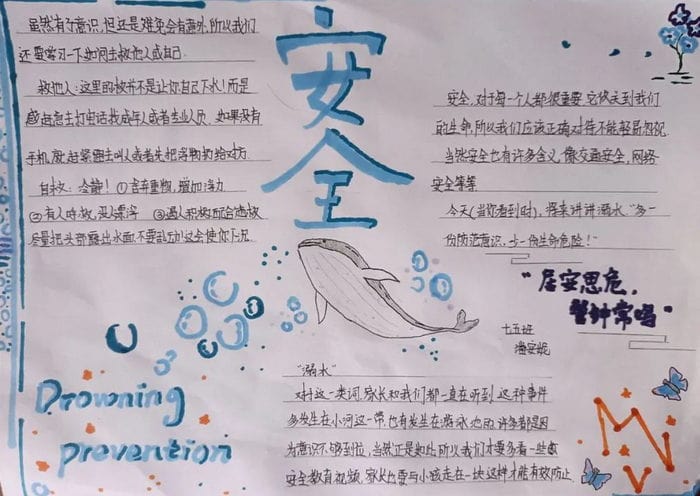 虽然有了意识,但还是难免会有意外,所以我们
还要学习一下如何去救他人或自己.
救他人:这里的救并不是让你自己下水!而是
赶紧去打电话找成年人或者专业人员,如果没有
手机,就赶紧跑去叫人或者先把浮物扔给对方.
自救:冷静!①舍弃重物,增加浮力
②有人时呼救,没人漂浮 ③遇人积极配合施救
尽量把头部露出水面,不要乱动!这会使你下沉.
安全
安全,对于每个人都很重要,它关乎到我们
的生命,所以我们应该正确对待不能轻易忽视.
当然安全也有许多含义,像交通安全,网络
安全等等.
今天(当你看到时),将来讲讲溺水."多一
份防范意识,少一份生命危险!"
"居安思危,
警钟常鸣"
七五班
潘安妮
"溺水"
对于这一类词,家长和我们都一直在听到,这种事件
多发生在小河这一带,也有发生在游泳池的,许多都是因
为意识不够到位,当然正是如此所以我们才要多看一些
安全教育视频,家长也要与小孩走在一块这样才能有效防止.
Drowning
prevention